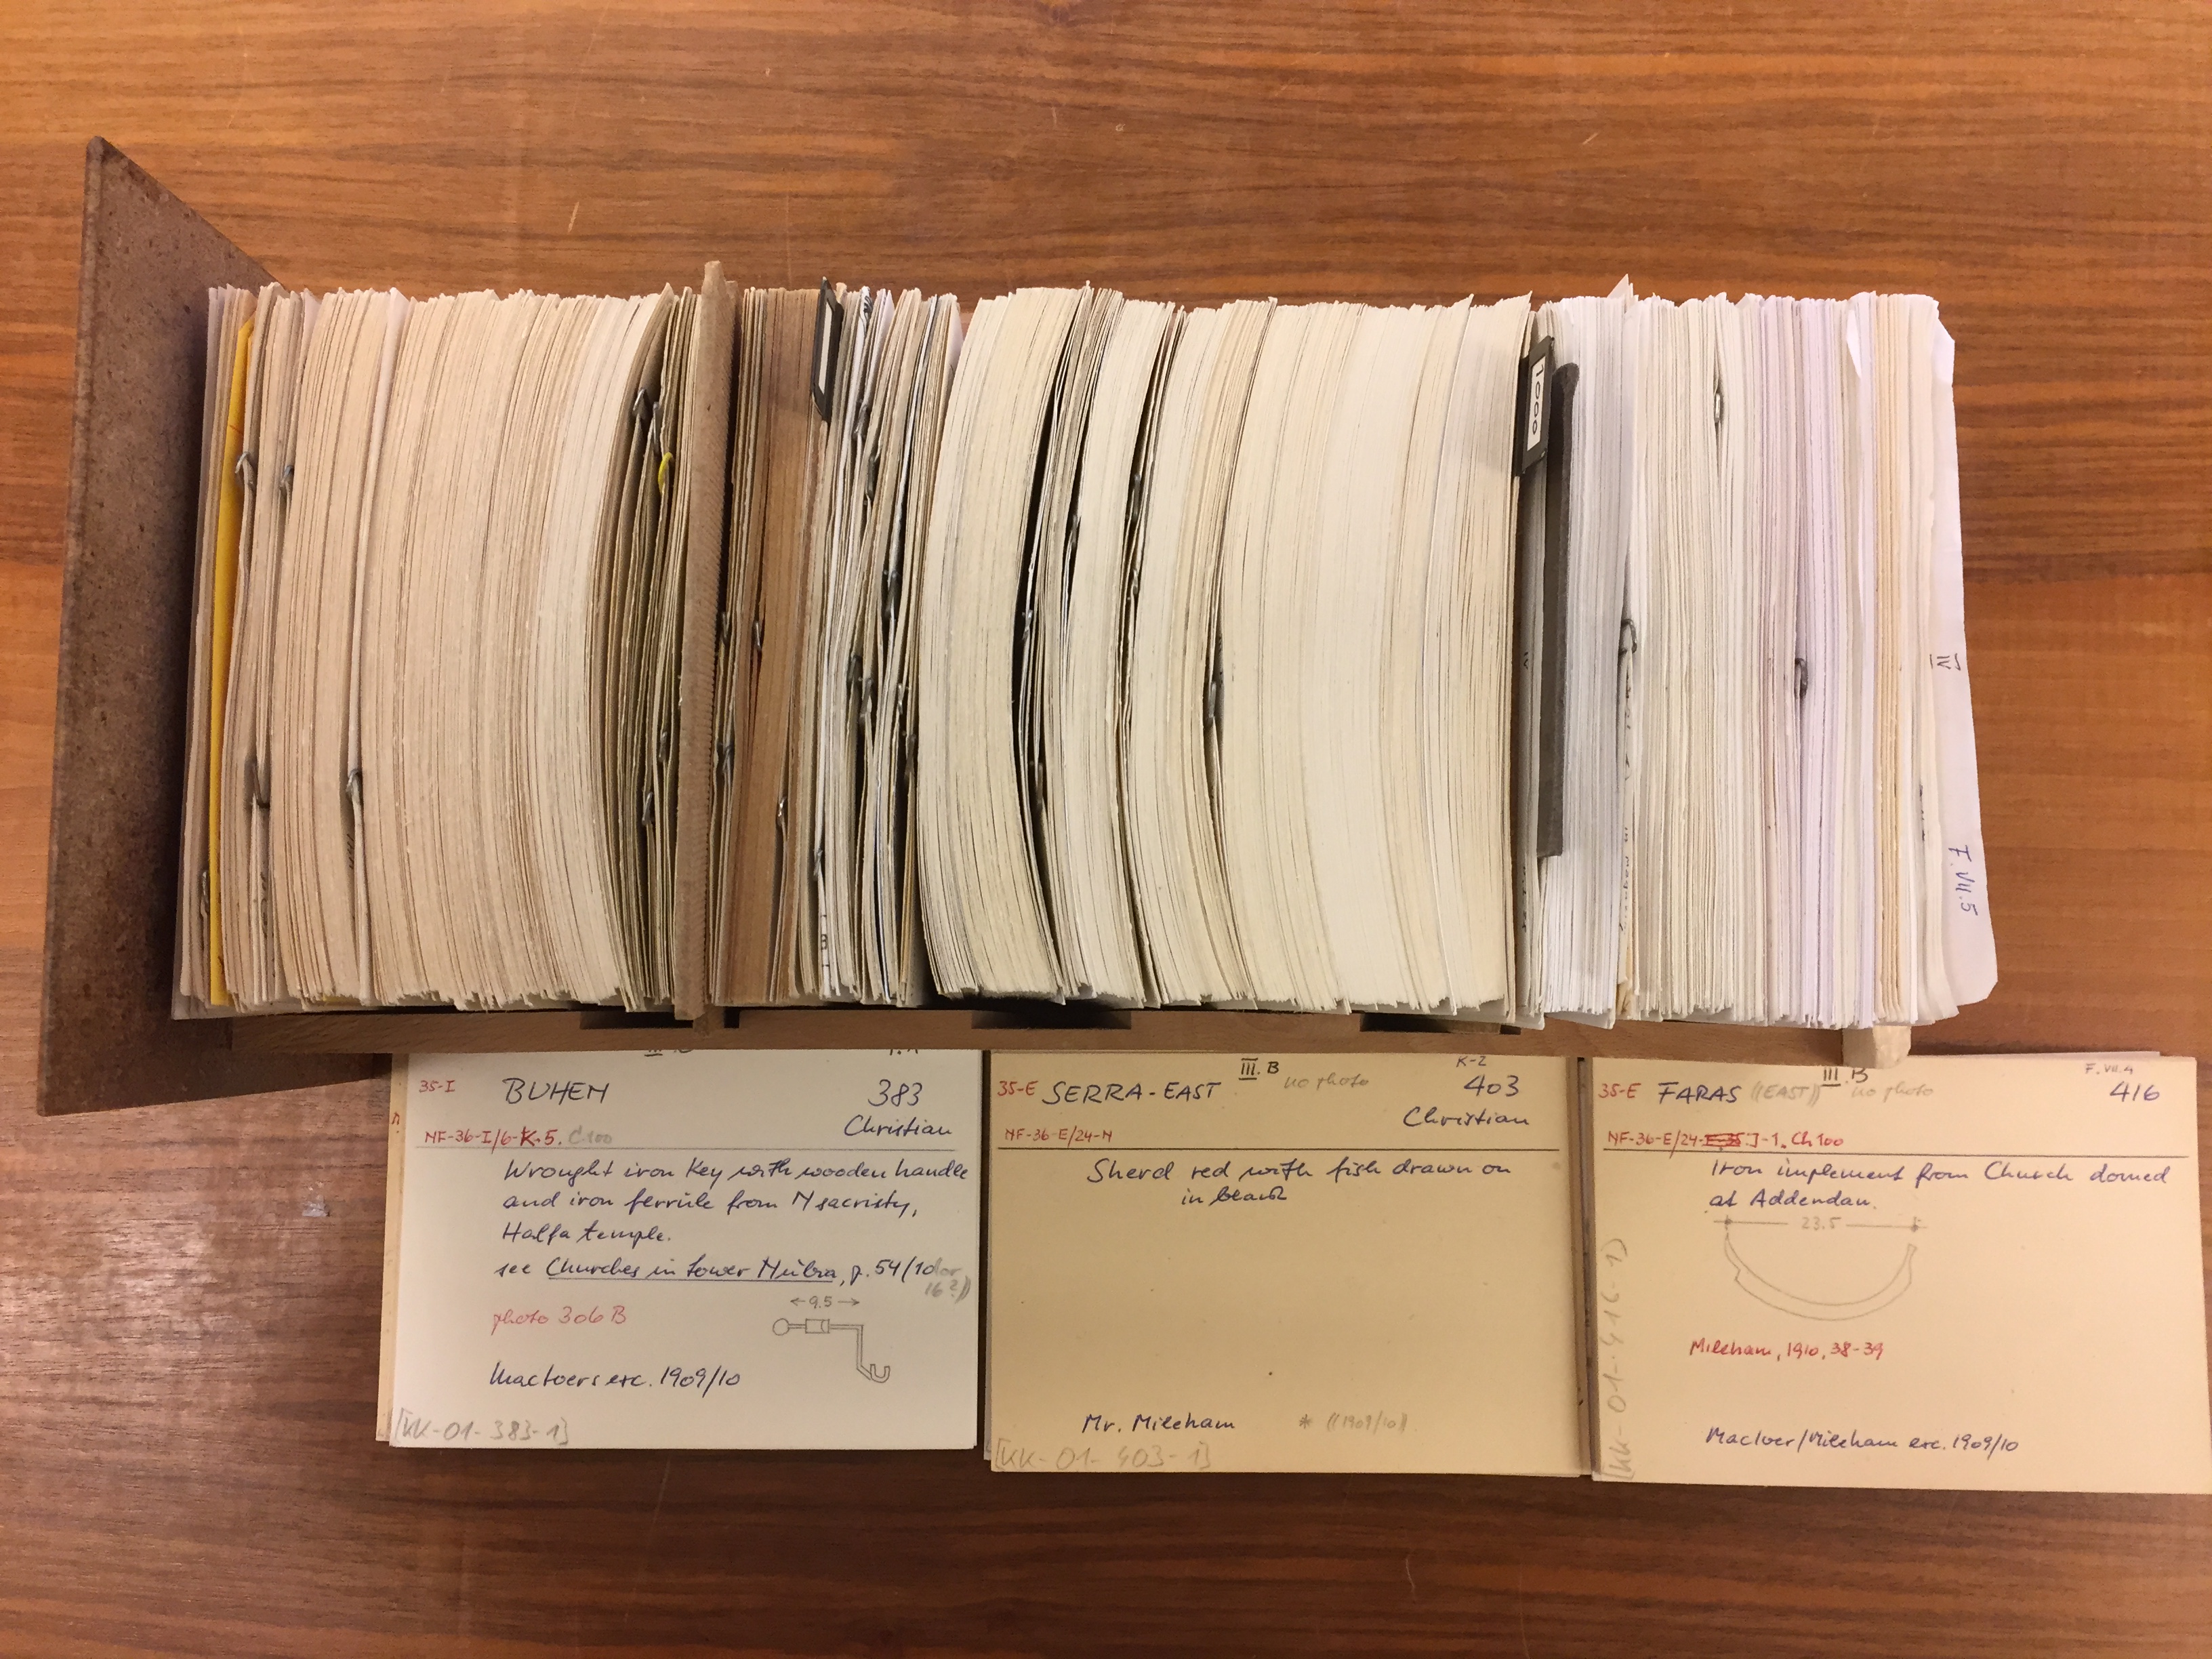 1000
IV
F. VII.5
35-I BUHEN 383
Christian
NF-36-I/6-K-5. C.100
Wrought iron Key with wooden handle
and iron ferrule from N sacristy,
Halfa temple.
see Churches in Lower Nubia, p. 54/10 (or
16?))
photo 306 B
← 9.5 →
MacIver's exc. 1909/10
[KK-01-383-1]
III. B K-2
35-E SERRA-EAST no photo 403
Christian
NF-36-E/24-N
Sherd red with fish drawn on
in black
Mr. Mileham * ((1909/10))
[KK-01-403-1]
III. B F. VII.4
35-E FARAS ((EAST)) no photo 416
NF-36-E/24-J-1. Ch 100
Iron implement from Church domed
at Addendan.
23.5
Mileham, 1910, 38-39
MacIver/Mileham exc. 1909/10
[KK-01-416-1]